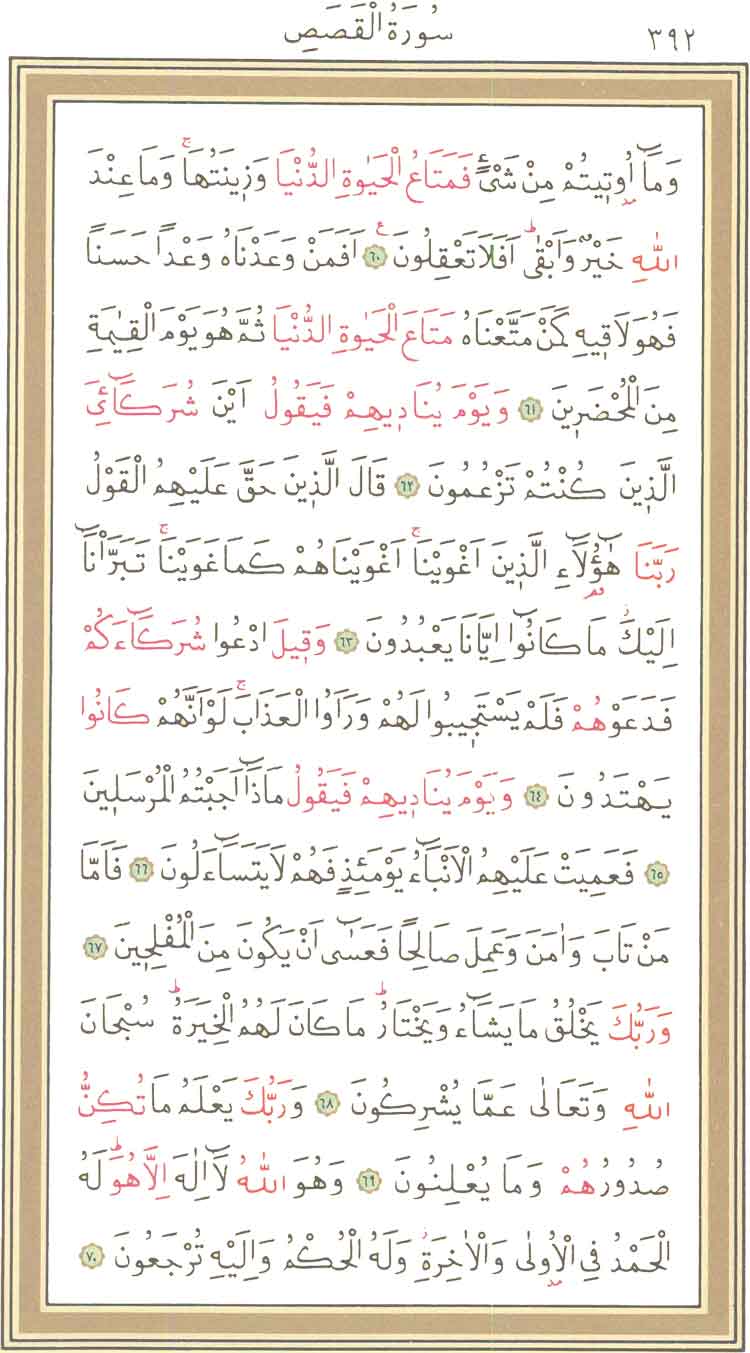 سُورَةُ الْقَصَصِ ٣٩٢
وَمَٓا اُو۫ت۪يتُمْ مِنْ شَيْءٍ فَمَتَاعُ الْحَيٰوةِ الدُّنْيَا وَز۪ينَتُهَاۚ وَمَا عِنْدَ
اللّٰهِ خَيْرٌ وَاَبْقٰىۜ اَفَلَا تَعْقِلُونَ۟ ﴿٦٠﴾ اَفَمَنْ وَعَدْنَاهُ وَعْدًا حَسَنًا
فَهُوَ لَاق۪يهِ كَمَنْ مَتَّعْنَاهُ مَتَاعَ الْحَيٰوةِ الدُّنْيَا ثُمَّ هُوَ يَوْمَ الْقِيٰمَةِ
مِنَ الْمُحْضَر۪ينَ ﴿٦١﴾ وَيَوْمَ يُنَاد۪يهِمْ فَيَقُولُ اَيْنَ شُرَكَٓائِيَ
الَّذ۪ينَ كُنْتُمْ تَزْعُمُونَ ﴿٦٢﴾ قَالَ الَّذ۪ينَ حَقَّ عَلَيْهِمُ الْقَوْلُ
رَبَّنَا هٰٓؤُ۬لَٓاءِ الَّذ۪ينَ اَغْوَيْنَاۚ اَغْوَيْنَاهُمْ كَمَا غَوَيْنَاۚ تَبَرَّأْنَٓا
اِلَيْكَۘ مَا كَانُٓوا اِيَّانَا يَعْبُدُونَ ﴿٦٣﴾ وَق۪يلَ ادْعُوا شُرَكَٓاءَكُمْ
فَدَعَوْهُمْ فَلَمْ يَسْتَج۪يبُوا لَهُمْ وَرَاَوُا الْعَذَابَۚ لَوْ اَنَّهُمْ كَانُوا
يَهْتَدُونَ ﴿٦٤﴾ وَيَوْمَ يُنَاد۪يهِمْ فَيَقُولُ مَاذَٓا اَجَبْتُمُ الْمُرْسَل۪ينَ
﴿٦٥﴾ فَعَمِيَتْ عَلَيْهِمُ الْاَنْبَٓاءُ يَوْمَئِذٍ فَهُمْ لَا يَتَسَٓاءَلُونَ ﴿٦٦﴾ فَاَمَّا
مَنْ تَابَ وَاٰمَنَ وَعَمِلَ صَالِحًا فَعَسٰٓى اَنْ يَكُونَ مِنَ الْمُفْلِح۪ينَ ﴿٦٧﴾
وَرَبُّكَ يَخْلُقُ مَا يَشَٓاءُ وَيَخْتَارُۜ مَا كَانَ لَهُمُ الْخِيَرَةُۜ سُبْحَانَ
اللّٰهِ وَتَعَالٰى عَمَّا يُشْرِكُونَ ﴿٦٨﴾ وَرَبُّكَ يَعْلَمُ مَا تُكِنُّ
صُدُورُهُمْ وَمَا يُعْلِنُونَ ﴿٦٩﴾ وَهُوَ اللّٰهُ لَٓا اِلٰهَ اِلَّا هُوَۜ لَهُ
الْحَمْدُ فِي الْاُو۫لٰى وَالْاٰخِرَةِۘ وَلَهُ الْحُكْمُ وَاِلَيْهِ تُرْجَعُونَ ﴿٧٠﴾